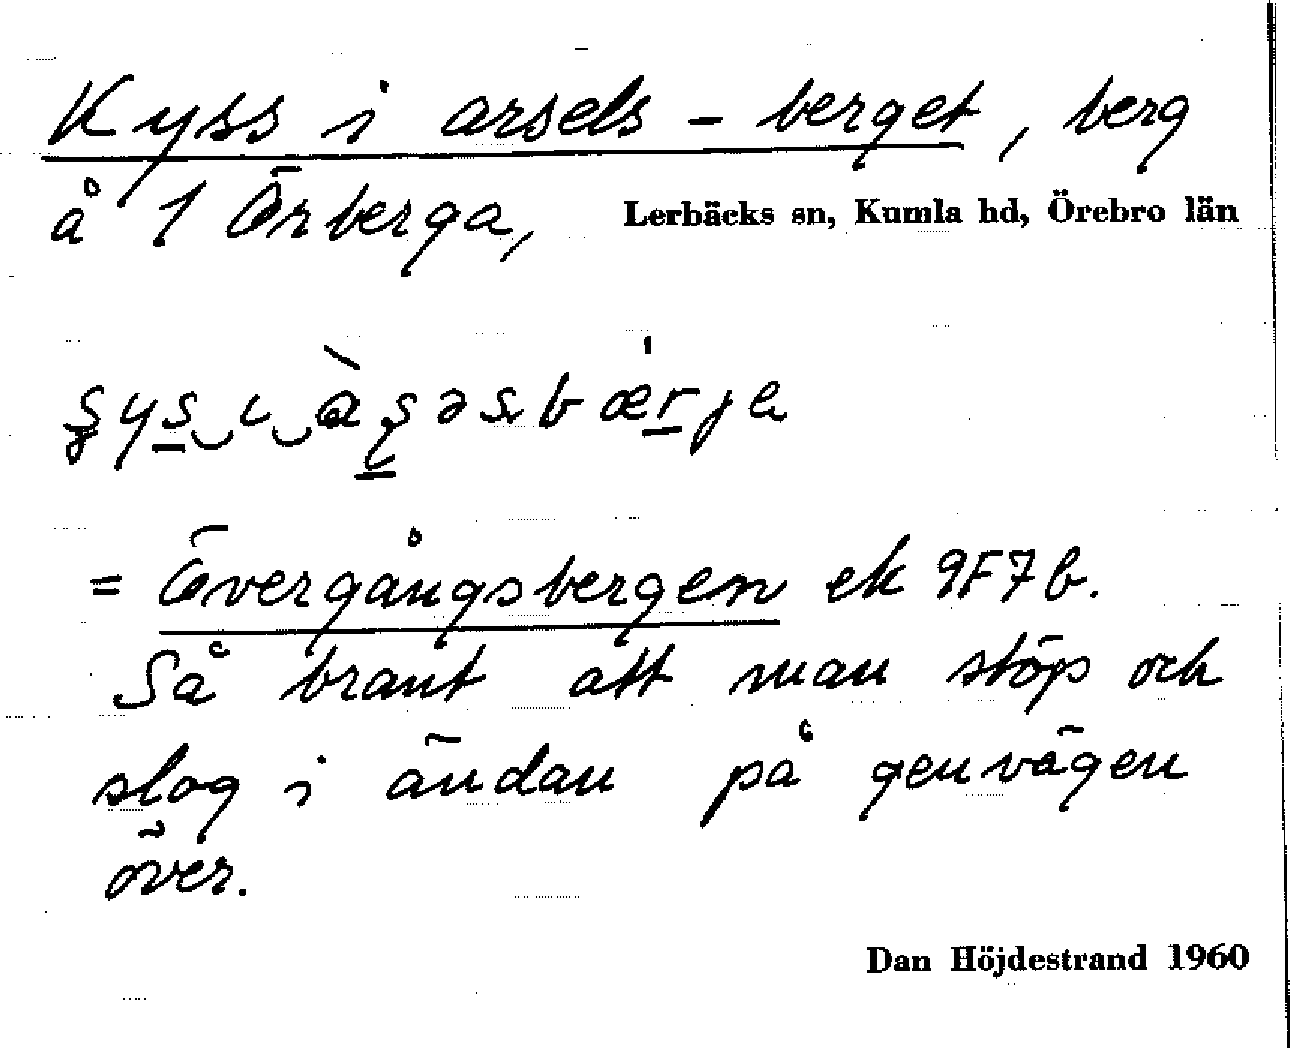 Kyss i arsels-berget, berg
å 1 Örberga, Lerbäcks sn, Kumla hd, Örebro län
= Övergångsbergen ek 9F7b.
Så brant att man stöp och
slog i ändan på genvägen
över.
Dan Höjdestrand 1960